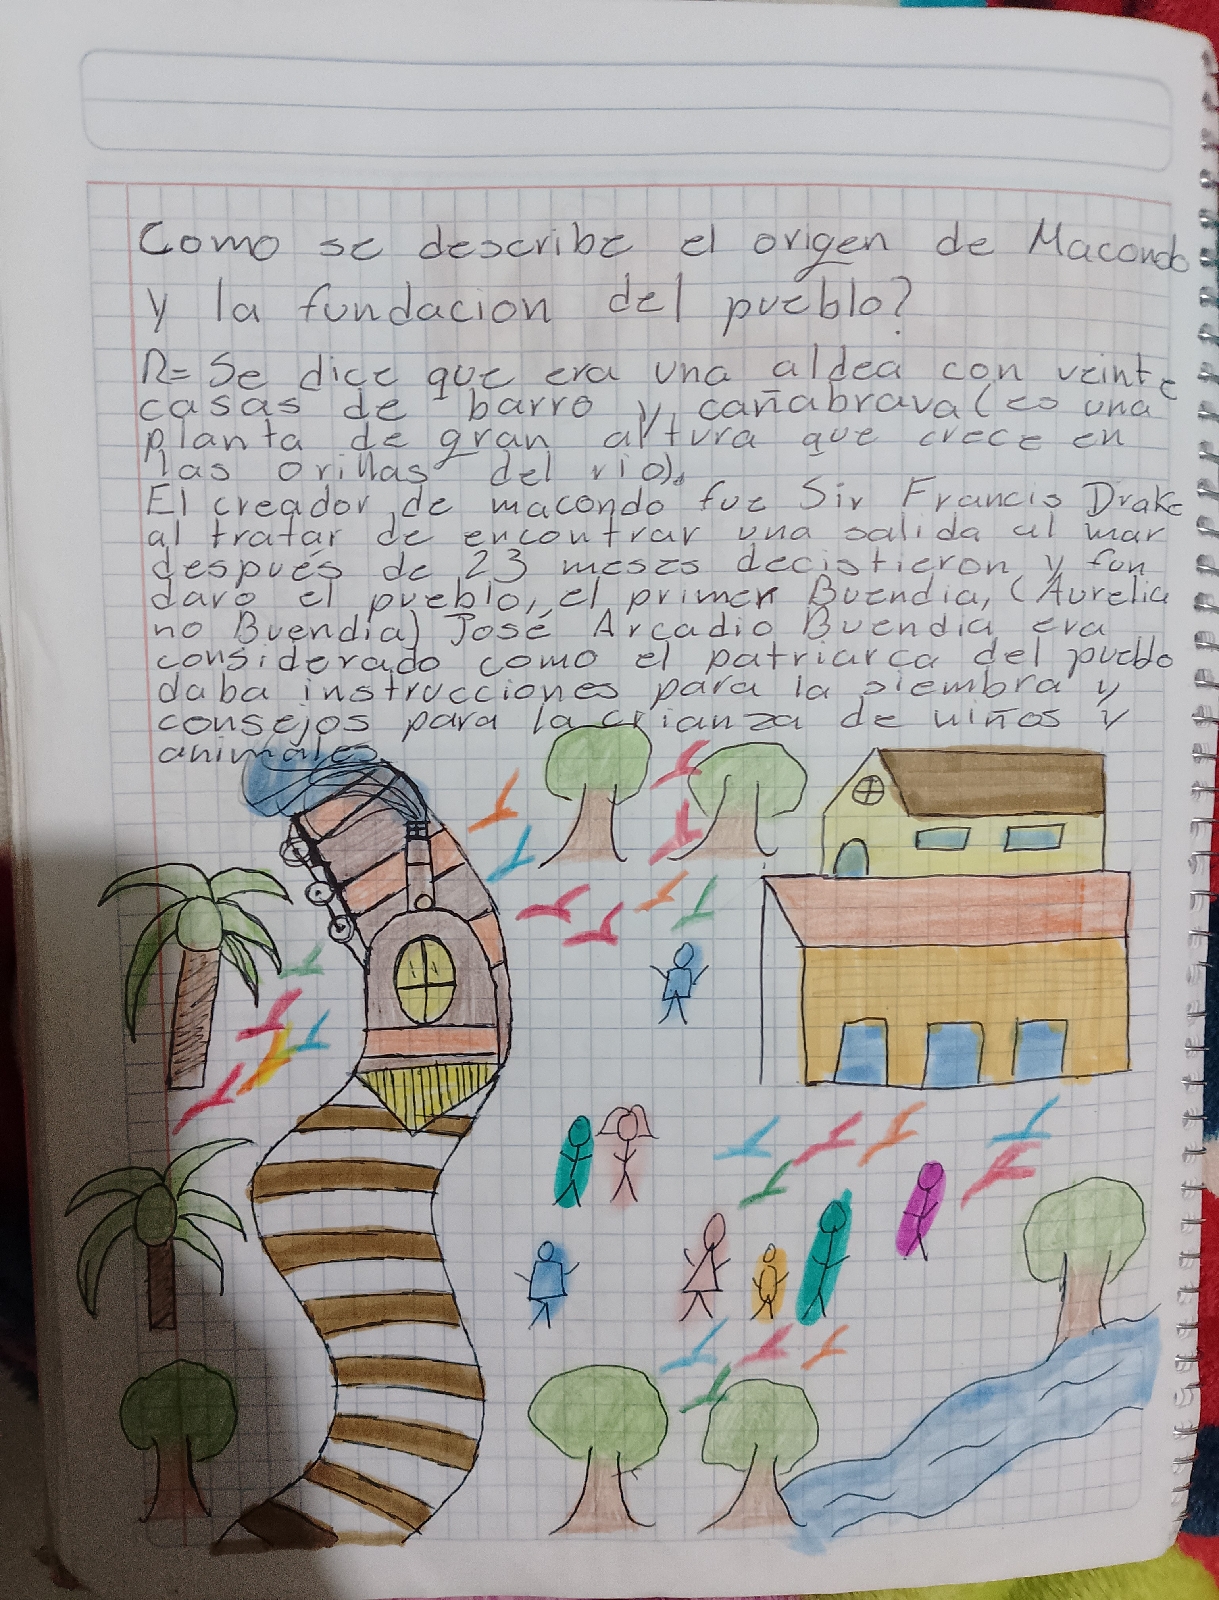 Como se describe el origen de Macondo
y la fundacion del pueblo?
R= Se dice que era una aldea con veinte
casas de barro y cañabrava (es una
planta de gran altura que crece en
las orillas del rio).
El creador de macondo fue Sir Francis Drake
al tratar de encontrar una salida al mar
después de 23 meses decistieron y fun
daro el pueblo, el primer Buendia, (Aurelia
no Buendia) José Arcadio Buendia era
considerado como el patriarca del pueblo
daba instrucciones para la siembra y
consejos para la crianza de niños y
animales